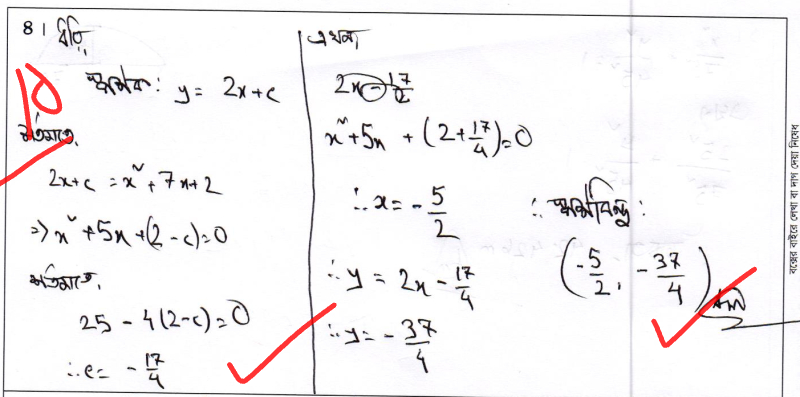 ৪। ধরি,
স্পর্শক: y = 2x+c
শর্তমতে,
2x+c = x² + 7x+2
=> x² +5x +(2-c)=0
শর্তমতে,
25 - 4(2-c)=0
∴ c = - 17/4
এখন
2x - 17/2
x² +5x + (2+17/4)=0
∴ x = - 5/2
∴ y = 2x - 17/4
∴ y = - 37/4
∴ স্পর্শবিন্দু :
(-5/2, -37/4)
বক্সের বাইরে লেখা বা দাগ দেয়া নিষেধ